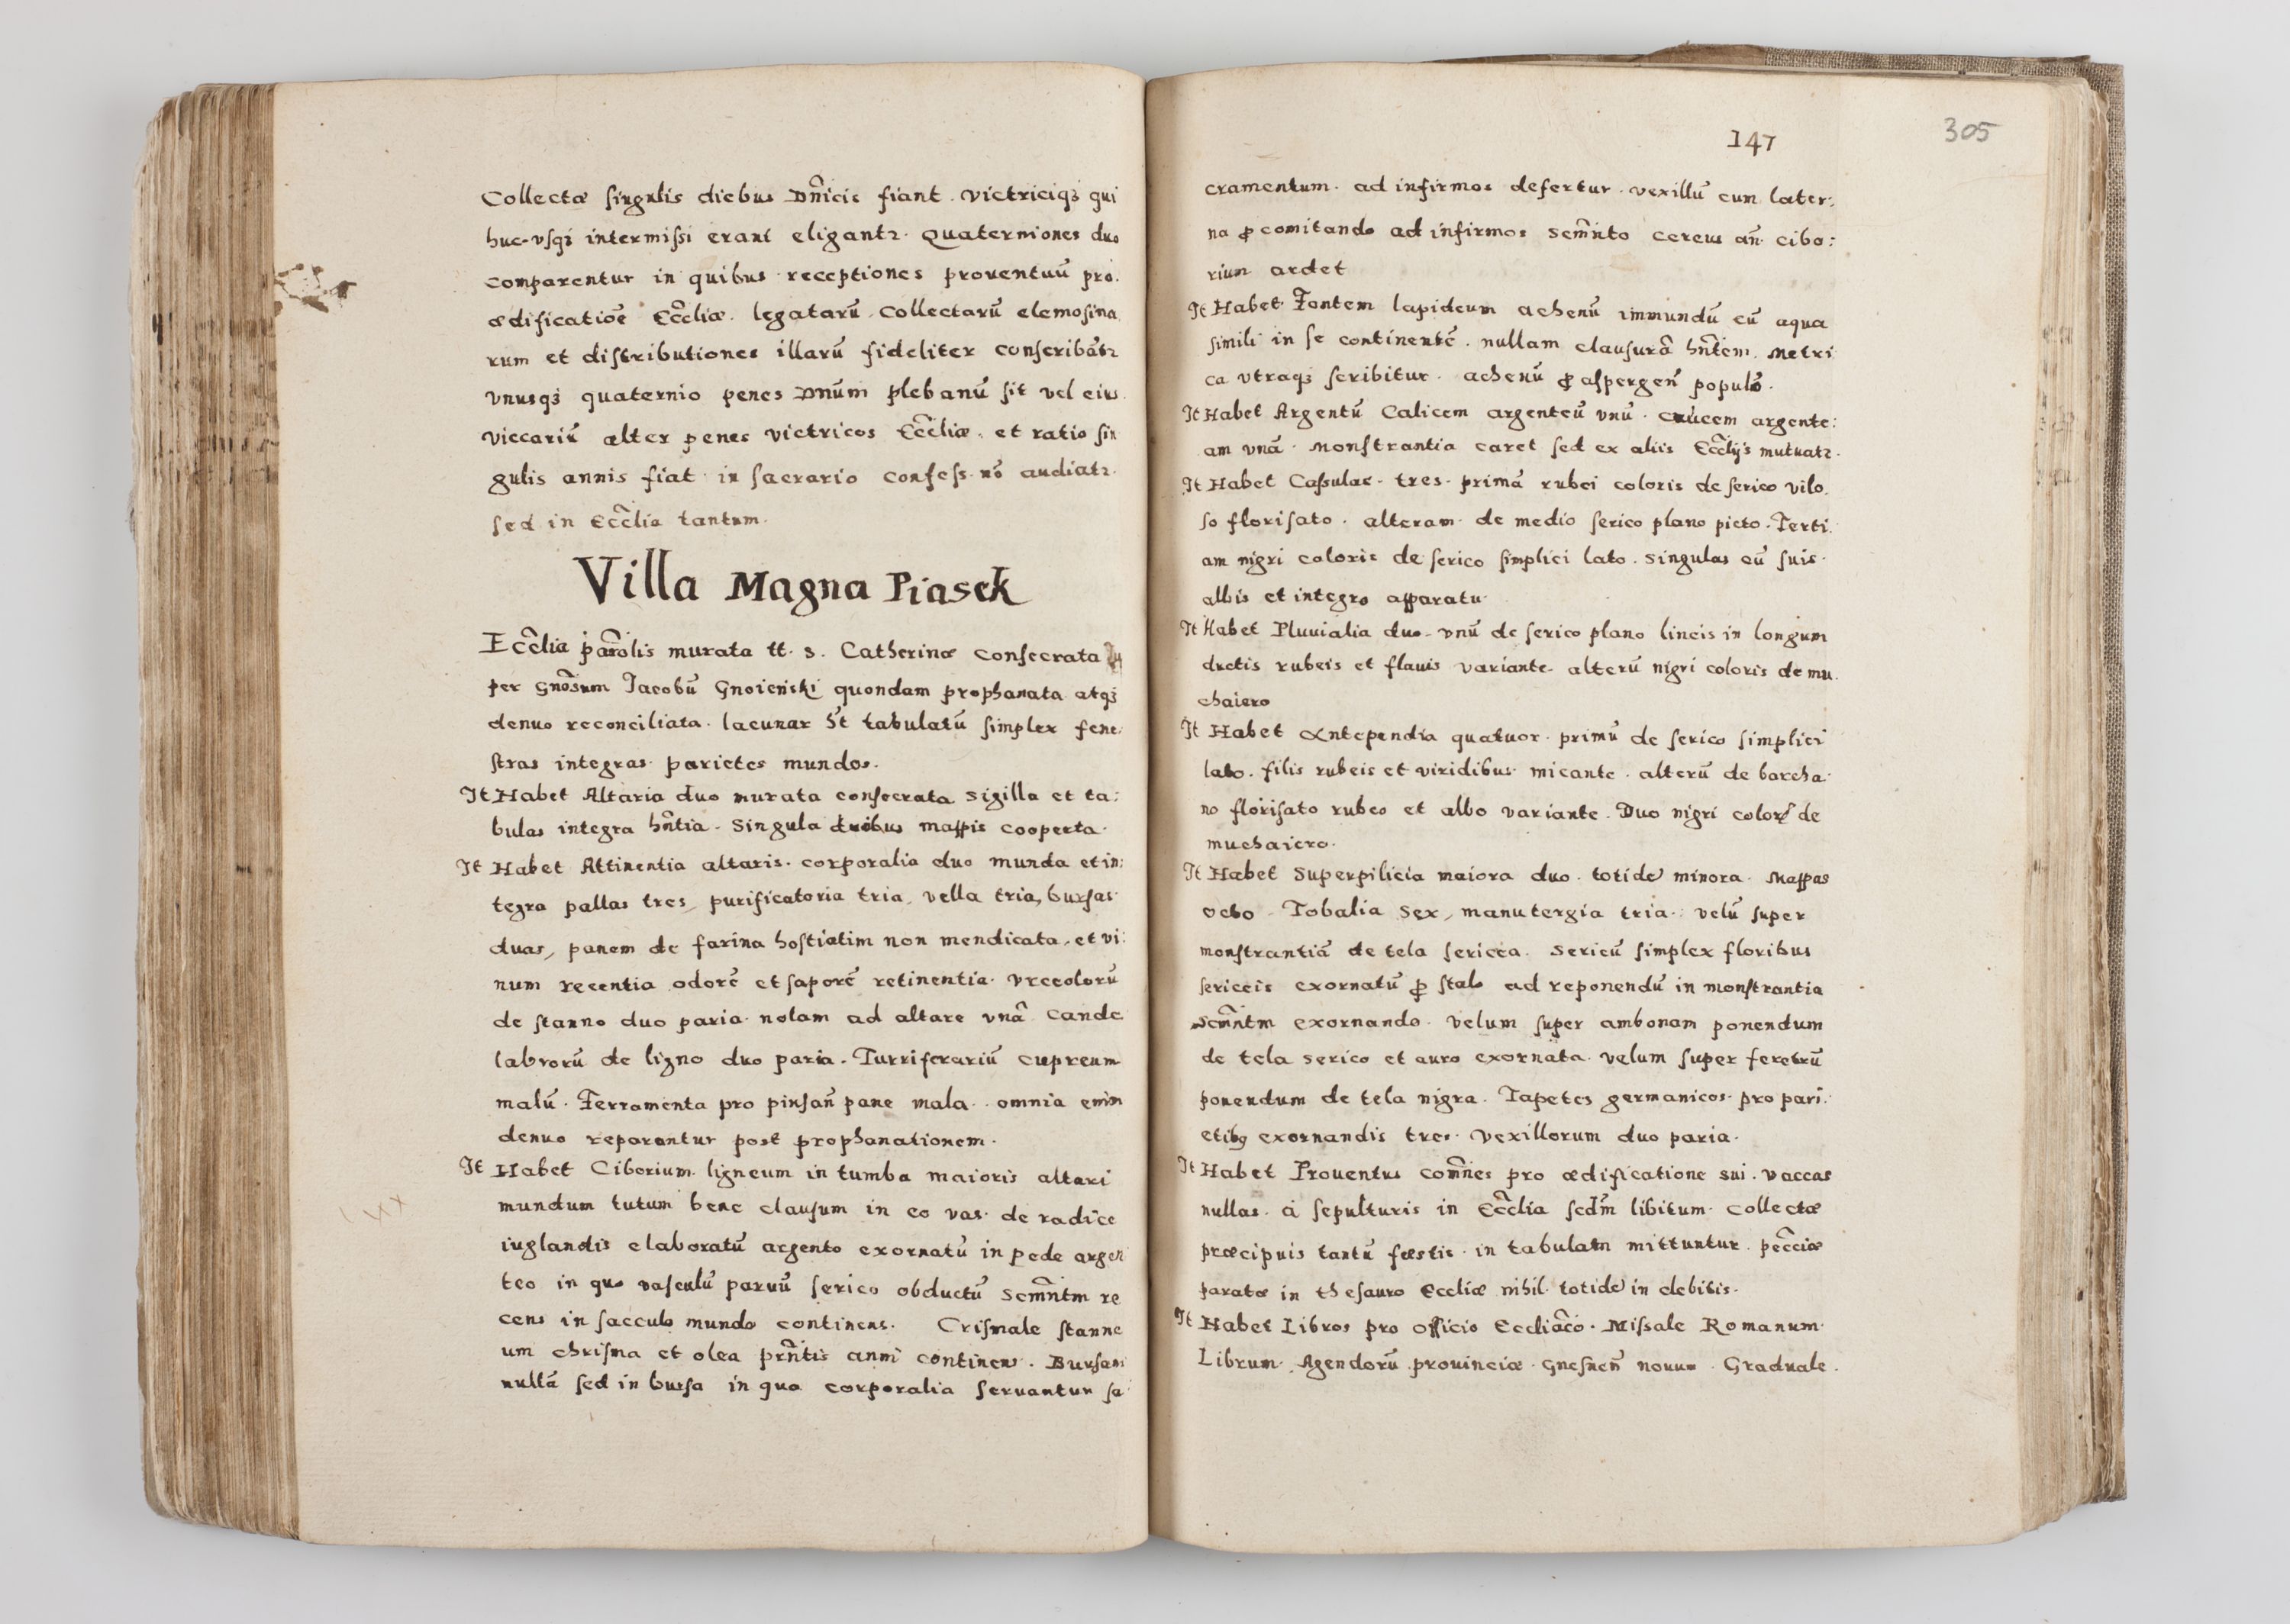 Collectæ singulis diebus Dn̄icis fiant. Victriciq3 qui
huc-usq3 intermissi erant eligantr. Quaterniones duo
comparentur in quibus receptiones prouentuū pro.
ædificatiōe Ecc̄liæ. legatarū. Collectarū elemosina
rum et distributiones illarū fideliter conscribātr
vnusq3 quaternio penes Dnūm plebanū sit vel eius.
viccariū alter penes victricos Ecc̄liæ. et ratio sin
gulis annis fiat in sacrario confess. nō audiatr.
sed in Ecc̄lia tantum.
Villa Magna Piasek
Ecc̄lia par̄olis murata tt. S. Catherinæ consecrata
per Gnōsum Jacobū Gnoieński quondam prophanata atq3
denuo reconciliata. lacunar h̄t tabulatū simplex fene.
stras integras parietes mundos.
It Habet Altaria duo murata consecrata sigilla et ta:
bulas integra hn̄tia. Singula duobus mappis cooperta.
It Habet Attinentia altaris. corporalia duo munda et in:
tegra pallas tres, purificatoria tria, vella tria, bursas
duas, panem de farina hostiatim non mendicata, et vi:
num recentia odorē et saporē retinentia. Vrceolorū
de stanno duo paria. nolam ad altare vnā Cande
labrorū de ligno duo paria. Turriferariū cupreum
malū. Ferramenta pro pinsan̄ pane mala. omnia enim
denuo reparantur post prophanationem.
It Habet Ciborium ligneum in tumba maioris altari
mundum tutum bene clausum in eo vas. de radice
iuglandis elaboratū argento exornatū in pede argen
teo in quo vasculū paruū serico obductū Scm̄ntm re
cens in sacculo mundo continens. Crismale stanne
um chrisma et olea prn̄tis anni continens. Bursam
nullā sed in bursa in qua corporalia seruantur sa
147
305
cramentum. ad infirmos defertur. vexillū cum later:
na ꝓ comitando ad infirmos Scm̄nto cereus an̄. cibo:
rium ardet
It Habet Fontem lapideum achenū immundū cū aqua
simili in se continentē. nullam clausurā hn̄tem. Metri
ca vtraq3 scribitur. achenū ꝓ aspergen̄ populo.
It Habet Argentū Calicem argenteū vnū. crucem argente:
am vnā. Monstrantia caret sed ex aliis Ecc̄lijs mutuatr.
It Habet Cassulas. tres. primā rubei coloris de serico vilo.
so florisato. alteram. de medio serico plano picto. Terti.
am nigri coloris de serico simplici lato. Singulas cū suis.
albis et integro apparatu.
It Habet Pluuialia duo. vnū de serico plano lineis in longum
ductis rubeis et flauis variante. alterū nigri coloris de mu.
chaiero
It Habet Antependia quatuor. primū de serico simplici
lato. filis rubeis et viridibus micante. alterū de barcha.
no florisato rubeo et albo variante. Duo nigri color̄ de
muchaiero.
It Habet Superpilicia maiora duo. totidē minora. Mappas
octo. Tobalia Sex, manutergia tria. velū super
monstrantiā de tela sericea. Sericū simplex floribus
sericeis exornatū ꝓ stalo ad reponendū in monstrantia
Scm̄ntm exornando. velum super ambonam ponendum
de tela serico et auro exornata. velum super feretrū
ponendum de tela nigra. Tapetes germanicos. pro pari.
etibꝫ exornandis tres. Vexillorum duo paria.
It Habet Prouentus com̄nes pro ædificatione sui. vaccas
nullas. à sepulturis in Ecc̄lia scd̄m libitum. Collectæ
præcipuis tantū fæstis. in tabulam mittuntur. pecc̄iæ
paratæ in thesauro Eccliæ nihil. totidē in debitis.
It Habet Libros pro officio Eccliāco. Missale Romanum.
Librum. Agendorū. prouinciæ. Gnesnen̄ nouum. Graduale.